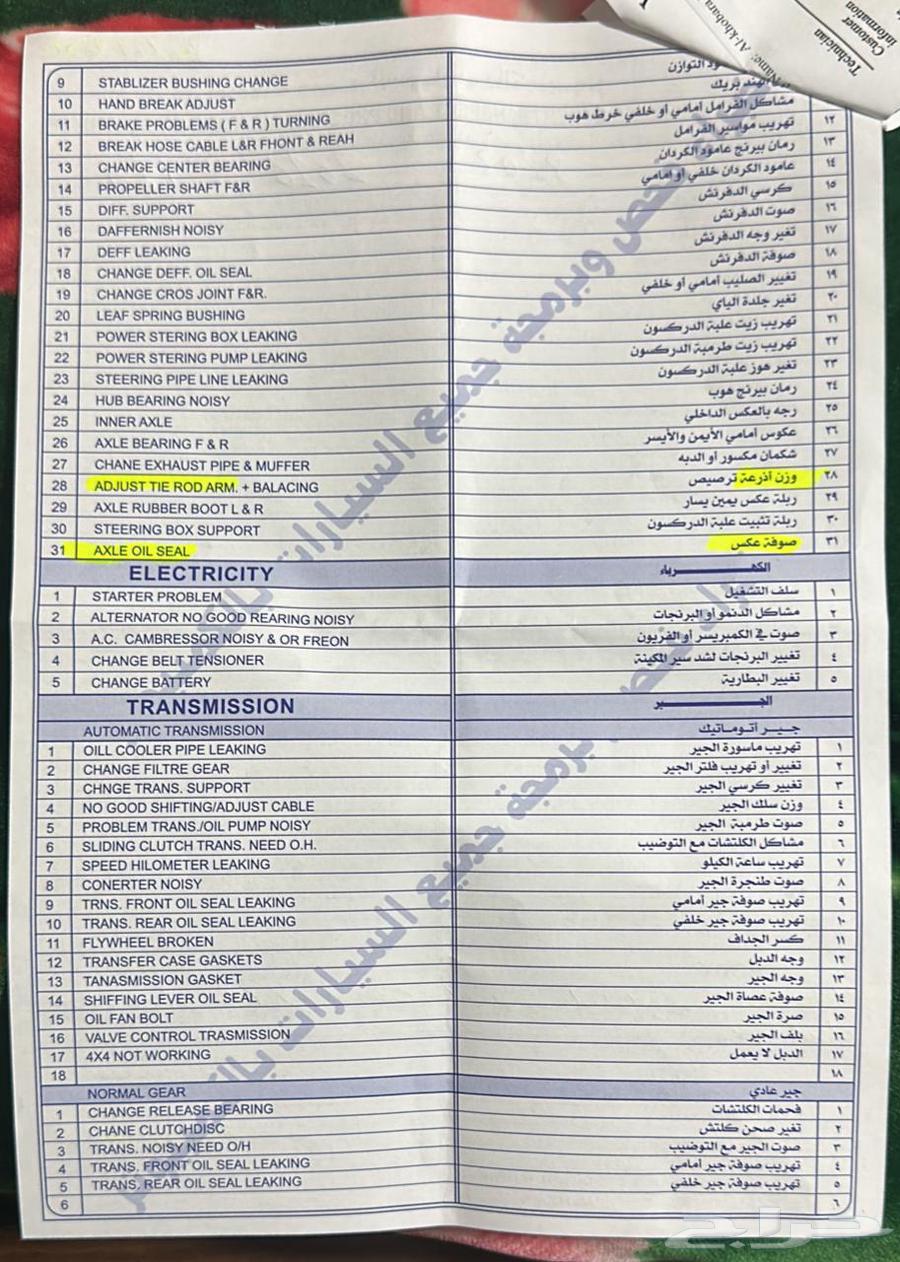 Technician
Customer
information
Name: Al-khobara
9 STABLIZER BUSHING CHANGE التوازن
10 HAND BREAK ADJUST الهند بريك
11 BRAKE PROBLEMS ( F & R ) TURNING مشاكل الفرامل أمامي أو خلفي خرط هوب
12 BREAK HOSE CABLE L&R FHONT & REAH تهريب مواسير الفرامل ١٢
13 CHANGE CENTER BEARING رمان بيرنج عامود الكردان ١٣
14 PROPELLER SHAFT F&R عامود الكردان خلفي أو أمامي ١٤
15 DIFF. SUPPORT كرسي الدفرنش ١٥
16 DAFFERNISH NOISY صوت الدفرنش ١٦
17 DEFF LEAKING تغير وجه الدفرنش ١٧
18 CHANGE DEFF. OIL SEAL صوفة الدفرنش ١٨
19 CHANGE CROS JOINT F&R. تغيير الصليب أمامي أو خلفي ١٩
20 LEAF SPRING BUSHING تغير جلدة الياي ٢٠
21 POWER STERING BOX LEAKING تهريب زيت علبة الدركسون ٢١
22 POWER STERING PUMP LEAKING تهريب زيت طرمبة الدركسون ٢٢
23 STEERING PIPE LINE LEAKING تغير هوز علبة الدركسون ٢٣
24 HUB BEARING NOISY رمان بيرنج هوب ٢٤
25 INNER AXLE رجه بالعكس الداخلي ٢٥
26 AXLE BEARING F & R عكوس أمامي الأيمن والأيسر ٢٦
27 CHANE EXHAUST PIPE & MUFFER شكمان مكسور أو الدبه ٢٧
28 ADJUST TIE ROD ARM. + BALACING وزن أذرعة ترصيص ٢٨
29 AXLE RUBBER BOOT L & R ربلة عكس يمين يسار ٢٩
30 STEERING BOX SUPPORT ربلة تثبيت علبة الدركسون ٣٠
31 AXLE OIL SEAL صوفة عكس ٣١
ELECTRICITY الكهرباء
1 STARTER PROBLEM سلف التشغيل ١
2 ALTERNATOR NO GOOD REARING NOISY مشاكل الدنمو أو البرنجات ٢
3 A.C. CAMBRESSOR NOISY & OR FREON صوت في الكمبريسر أو الفريون ٣
4 CHANGE BELT TENSIONER تغيير البرنجات لشد سير المكينة ٤
5 CHANGE BATTERY تغيير البطارية ٥
TRANSMISSION الجير
AUTOMATIC TRANSMISSION جير أتوماتيك
1 OILL COOLER PIPE LEAKING تهريب ماسورة الجير ١
2 CHANGE FILTRE GEAR تغيير أو تهريب فلتر الجير ٢
3 CHNGE TRANS. SUPPORT تغيير كرسي الجير ٣
4 NO GOOD SHIFTING/ADJUST CABLE وزن سلك الجير ٤
5 PROBLEM TRANS./OIL PUMP NOISY صوت طرمبة الجير ٥
6 SLIDING CLUTCH TRANS. NEED O.H. مشاكل الكلتشات مع التوضيب ٦
7 SPEED HILOMETER LEAKING تهريب ساعة الكيلو ٧
8 CONERTER NOISY صوت طنجرة الجير ٨
9 TRNS. FRONT OIL SEAL LEAKING تهريب صوفة جير أمامي ٩
10 TRANS. REAR OIL SEAL LEAKING تهريب صوفة جير خلفي ١٠
11 FLYWHEEL BROKEN كسر الجداف ١١
12 TRANSFER CASE GASKETS وجه الدبل ١٢
13 TANASMISSION GASKET وجه الجير ١٣
14 SHIFFING LEVER OIL SEAL صوفة عصاة الجير ١٤
15 OIL FAN BOLT صرة الجير ١٥
16 VALVE CONTROL TRASMISSION بلف الجير ١٦
17 4X4 NOT WORKING الدبل لا يعمل ١٧
18 ١٨
NORMAL GEAR جير عادي
1 CHANGE RELEASE BEARING فحمات الكلتشات ١
2 CHANE CLUTCHDISC تغير صحن كلتش ٢
3 TRANS. NOISY NEED O/H صوت الجير مع التوضيب ٣
4 TRANS. FRONT OIL SEAL LEAKING تهريب صوفة جير أمامي ٤
5 TRANS. REAR OIL SEAL LEAKING تهريب صوفة جير خلفي ٥
6 ٦
حراج